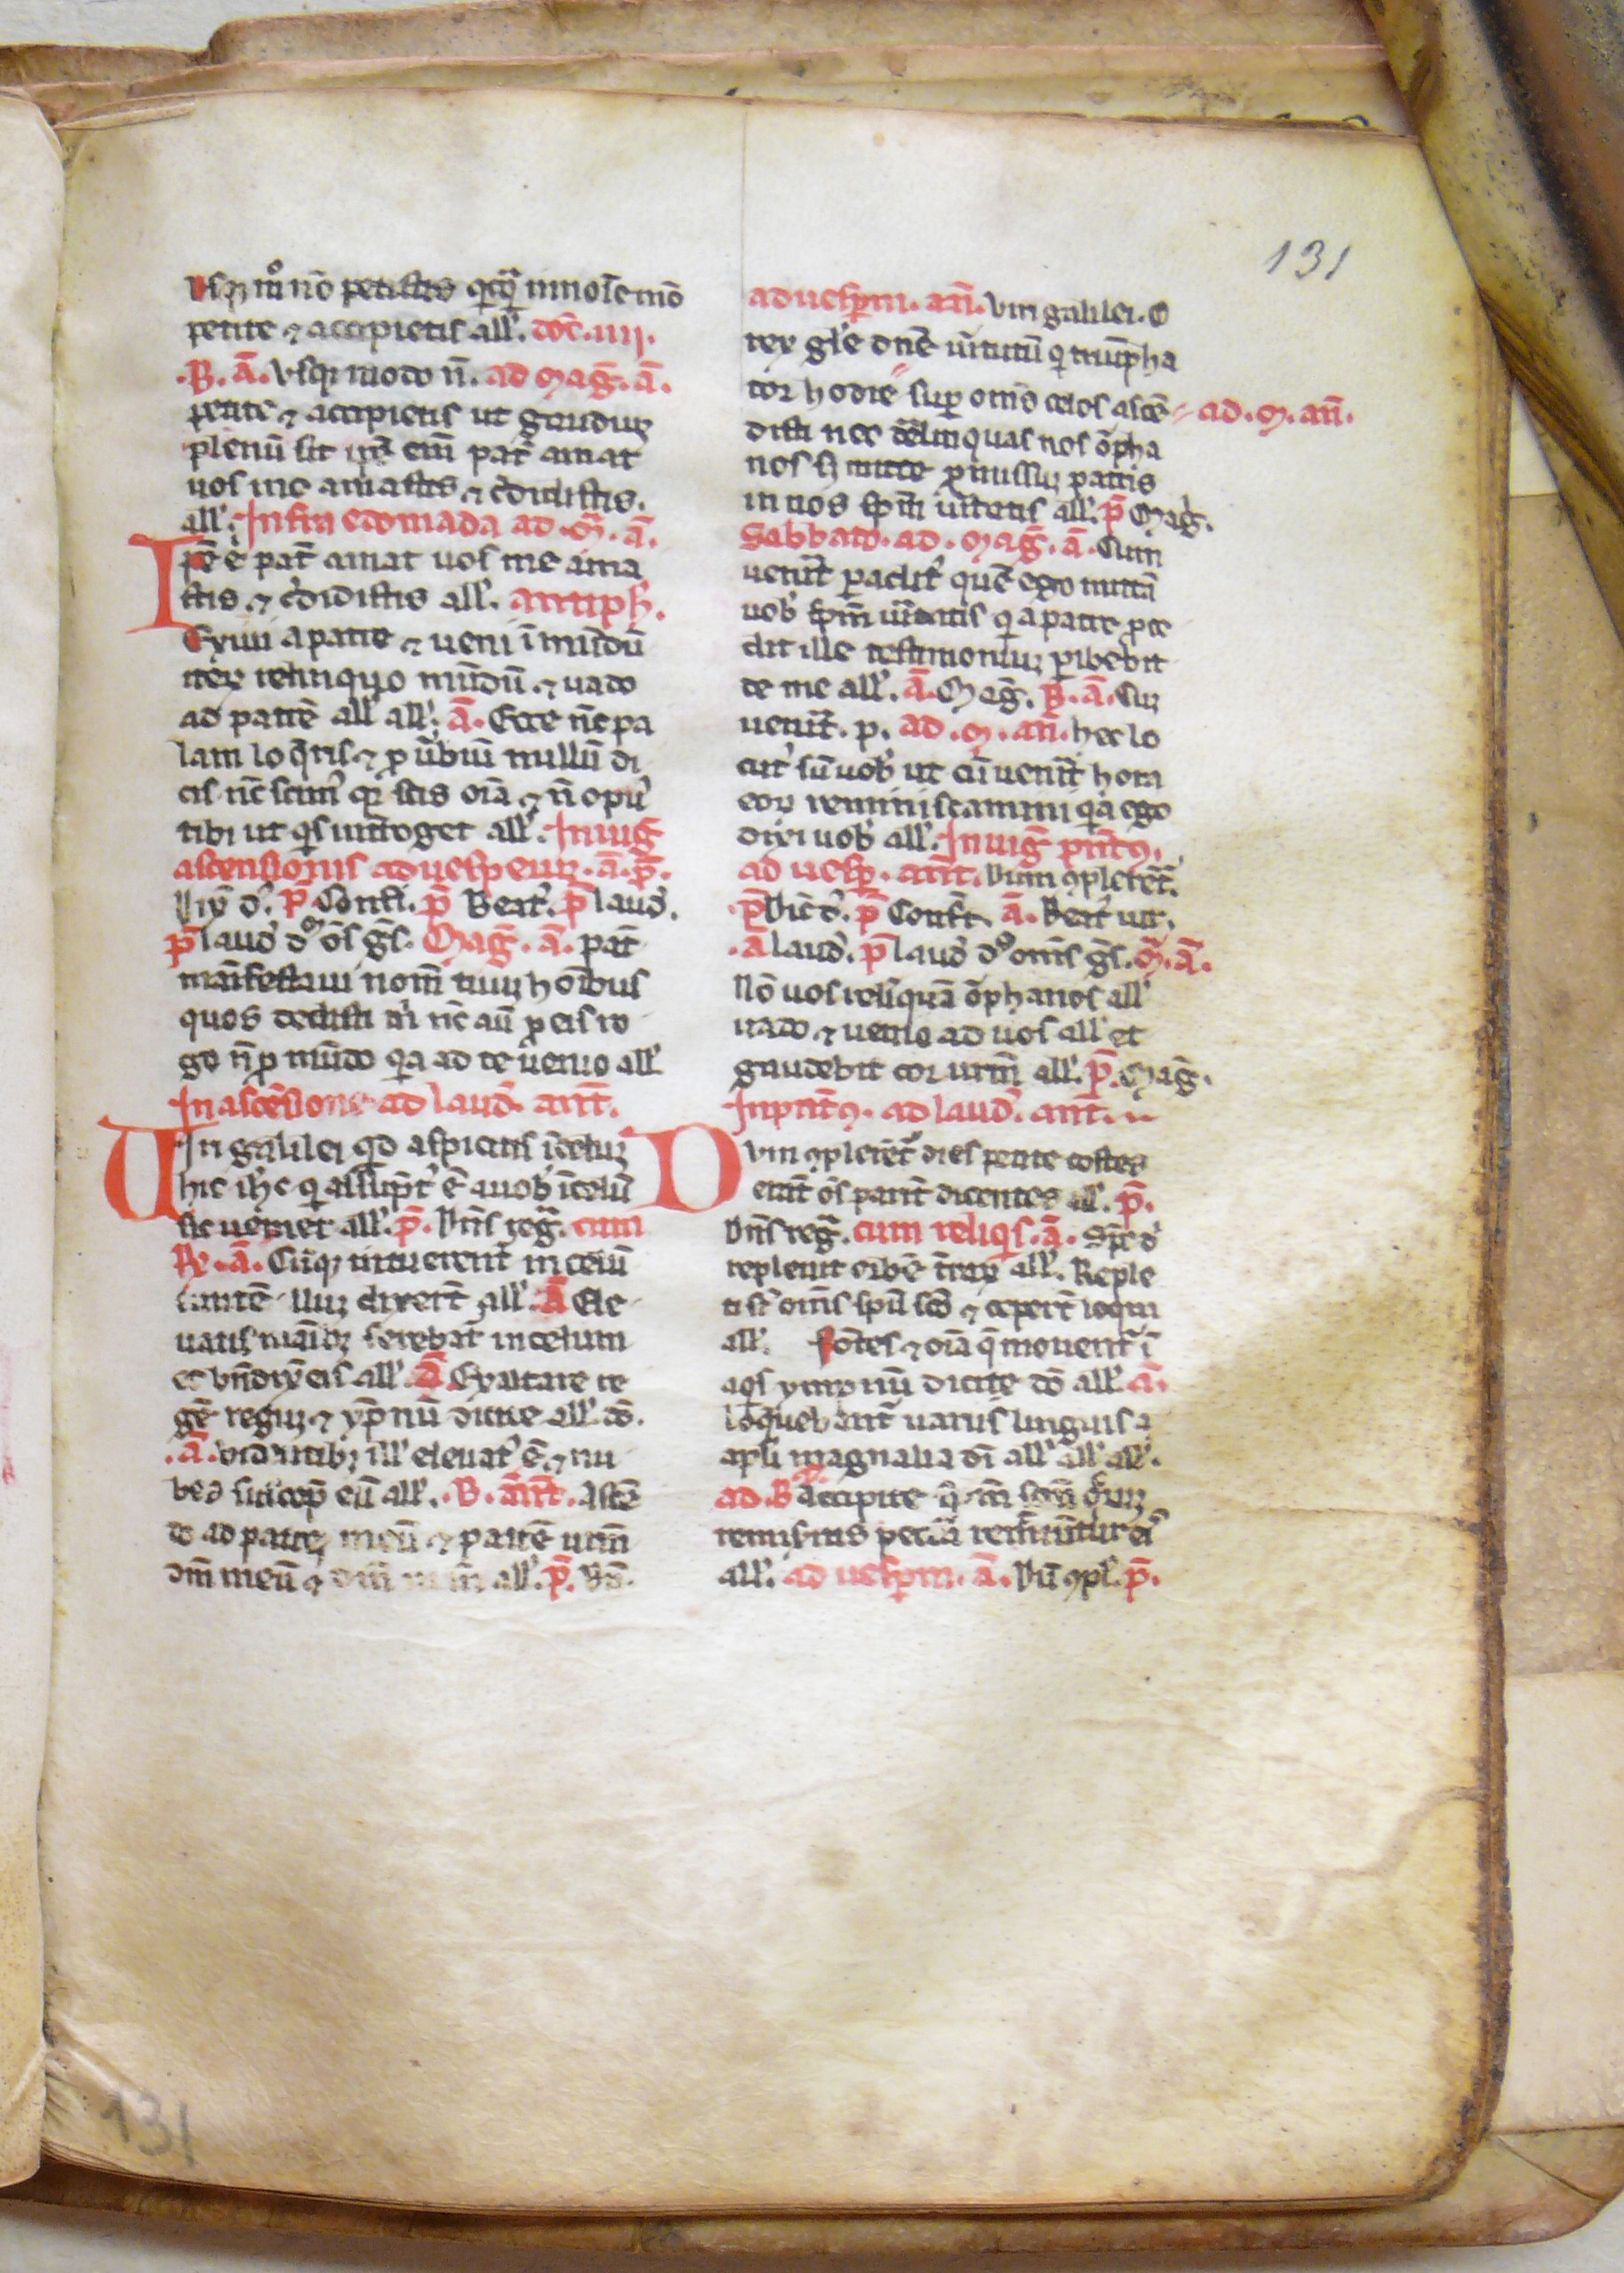 131
Usqȝ mo nō petistis qͥcqͣ in noīe mō
petite ⁊ accipietis all'. dōc. iiij.
.B. ā. Usqȝ modo n̄. ad mag̅. ā.
petite ⁊ accipietis ut gaudiuȝ
plenū sit ip̄e eīn pat̄ amat
uos me amastis ⁊ c̄didistis.
all'. Infra edomada ad. m̄. ā.
Ip̄e .e. pat̄ amat uos me ama
stis ⁊ c̄didistis all'. antiph̄.
Exiui a patre ⁊ ueni ī mūdū
iteꝝ relinquo mūdū ⁊ uado
ad patrē all' all'. ā. Ecce n̄c pa
lam loq̄ris ⁊ ꝓ ūbiū nullū di
cis n̄c scim' qꝛ scis oīa ⁊ n̄ opu'
tibi ut qͥs int̄roget all'. In uig̅
ascensionis ad uesperuȝ. ā. p̄.
Dix̄ d'. p̄ Confi. p̄ Beat'. p̄ laud'.
p̄ laud' d' ōs gs̄. Mag̅. ā. pat̄
manifestaui nom̄ tuuȝ hoībus
quos dedisti m̄ n̄c aū ꝓ eis ro
go n̄ ꝓ mūdo qͥa ad te uenio all'
In ascēsione ad laud'. ant̄.
Uiri galilei qͥd aspicitis ī celuȝ
hic ih̄c qͥ assūpt' ē a uob' ī celū
sic ueniet all'. p̄. Dn̄s reg̅. cum
Re. ā. Cūqȝ intuerent̄ in celū
euntē illuȝ dixert̄ all'. ā Ele
uatis manibȝ ferebat̄ in celum
et bn̄dix̄ eis all'. ā Exaltate re
gē reguȝ ⁊ yp̄nū dicite all'. dō.
.ā. uidentibȝ ill' eleuat' ē ⁊ nu
bes suscep̄ eū all'. .B. ant̄. Ascē
do ad patreȝ meū ⁊ patrē urm̄
dm̄ meū ⁊ dm̄ urm̄ all'. p̄. Dn̄.
ad uesꝑm. an̄. Uiri galilei. O
rex gl'e dn̄e uirtutū qͥ triūpha
tor hodie suꝑ om̄s celos ascē ad. m. an̄.
disti nec derelinquas nos orpha
nos sȝ mitte ꝓmissuȝ patris
in nos sp̄m ueritatis all'. p̄ Mag̅.
Sabbato. ad. mag̅. ā. Cum
uenit̄ paraclit' quē ego mittā
uob' sp̄m ueritatis qͥ a patre ꝓce
dit ille testimoniuȝ ꝑhibebit
de me all'. ā. Mag̅. B. ā. Cuȝ
uenit̄. p. ad. m. an̄. hec lo
cut' sū uob' ut cū uenit̄ hora
eoꝝ reminiscamini qͥa ego
dixi uob' all'. In uig̅ pn̄t.
ad uesꝑ. ant̄. Dum ꝯpleret̄.
p̄ Dix̄ d'. p̄ Confit. ā. Beat' uir.
.ā laud'. p̄ laud' d' om̄s gs̄. m̄. ā.
Nō uos relīquā orphanos all'
uado ⁊ uenio ad uos all' et
gaudebit cor urm̄ all'. p̄. mag̅.
In pnt̄. ad laud'. ant̄.
Dum ꝯpleret̄ dies pente costes
erāt ōs parit̄ dicentes all'. p̄.
Dn̄s reg̅. cum reliqͥs. ā. Sp̄c d'
repleuit orbē t̄raꝝ all'. Reple
ti st̄ om̄s spū scō ⁊ ceperūt loqui
all'. fōtes ⁊ oīa q̄ mouent̄ ī
aqͥs ympnū dicite dō all'. ā.
Loquebant̄ uariis linguis a
apl'i magnalia dī all' all' all'.
ad. B accipite
remiseritis peccata remittūtur eis
all'. ad uesꝑm. ā. Dū ꝯpl'. p̄.
131